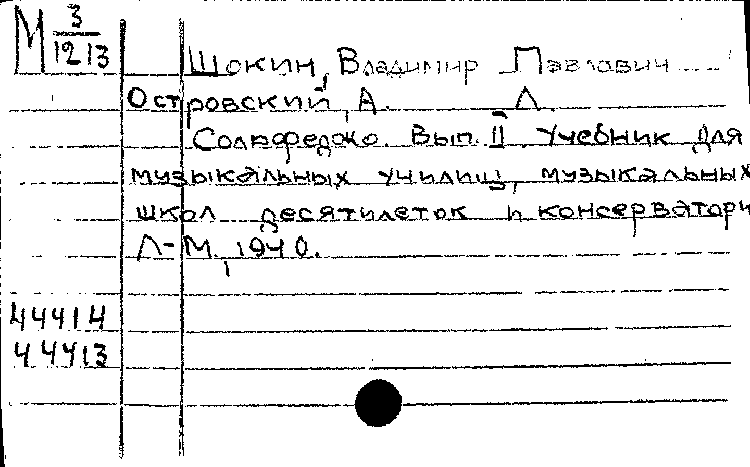 М 3/1213
Шокин, Владимир Павлович
Островский, А. Л.
Сольфеджо. Вып. II. Учебник для
музыкальных училищ, музыкальных
школ десятилеток и консерватори
Л-М., 1940.
44414
44413